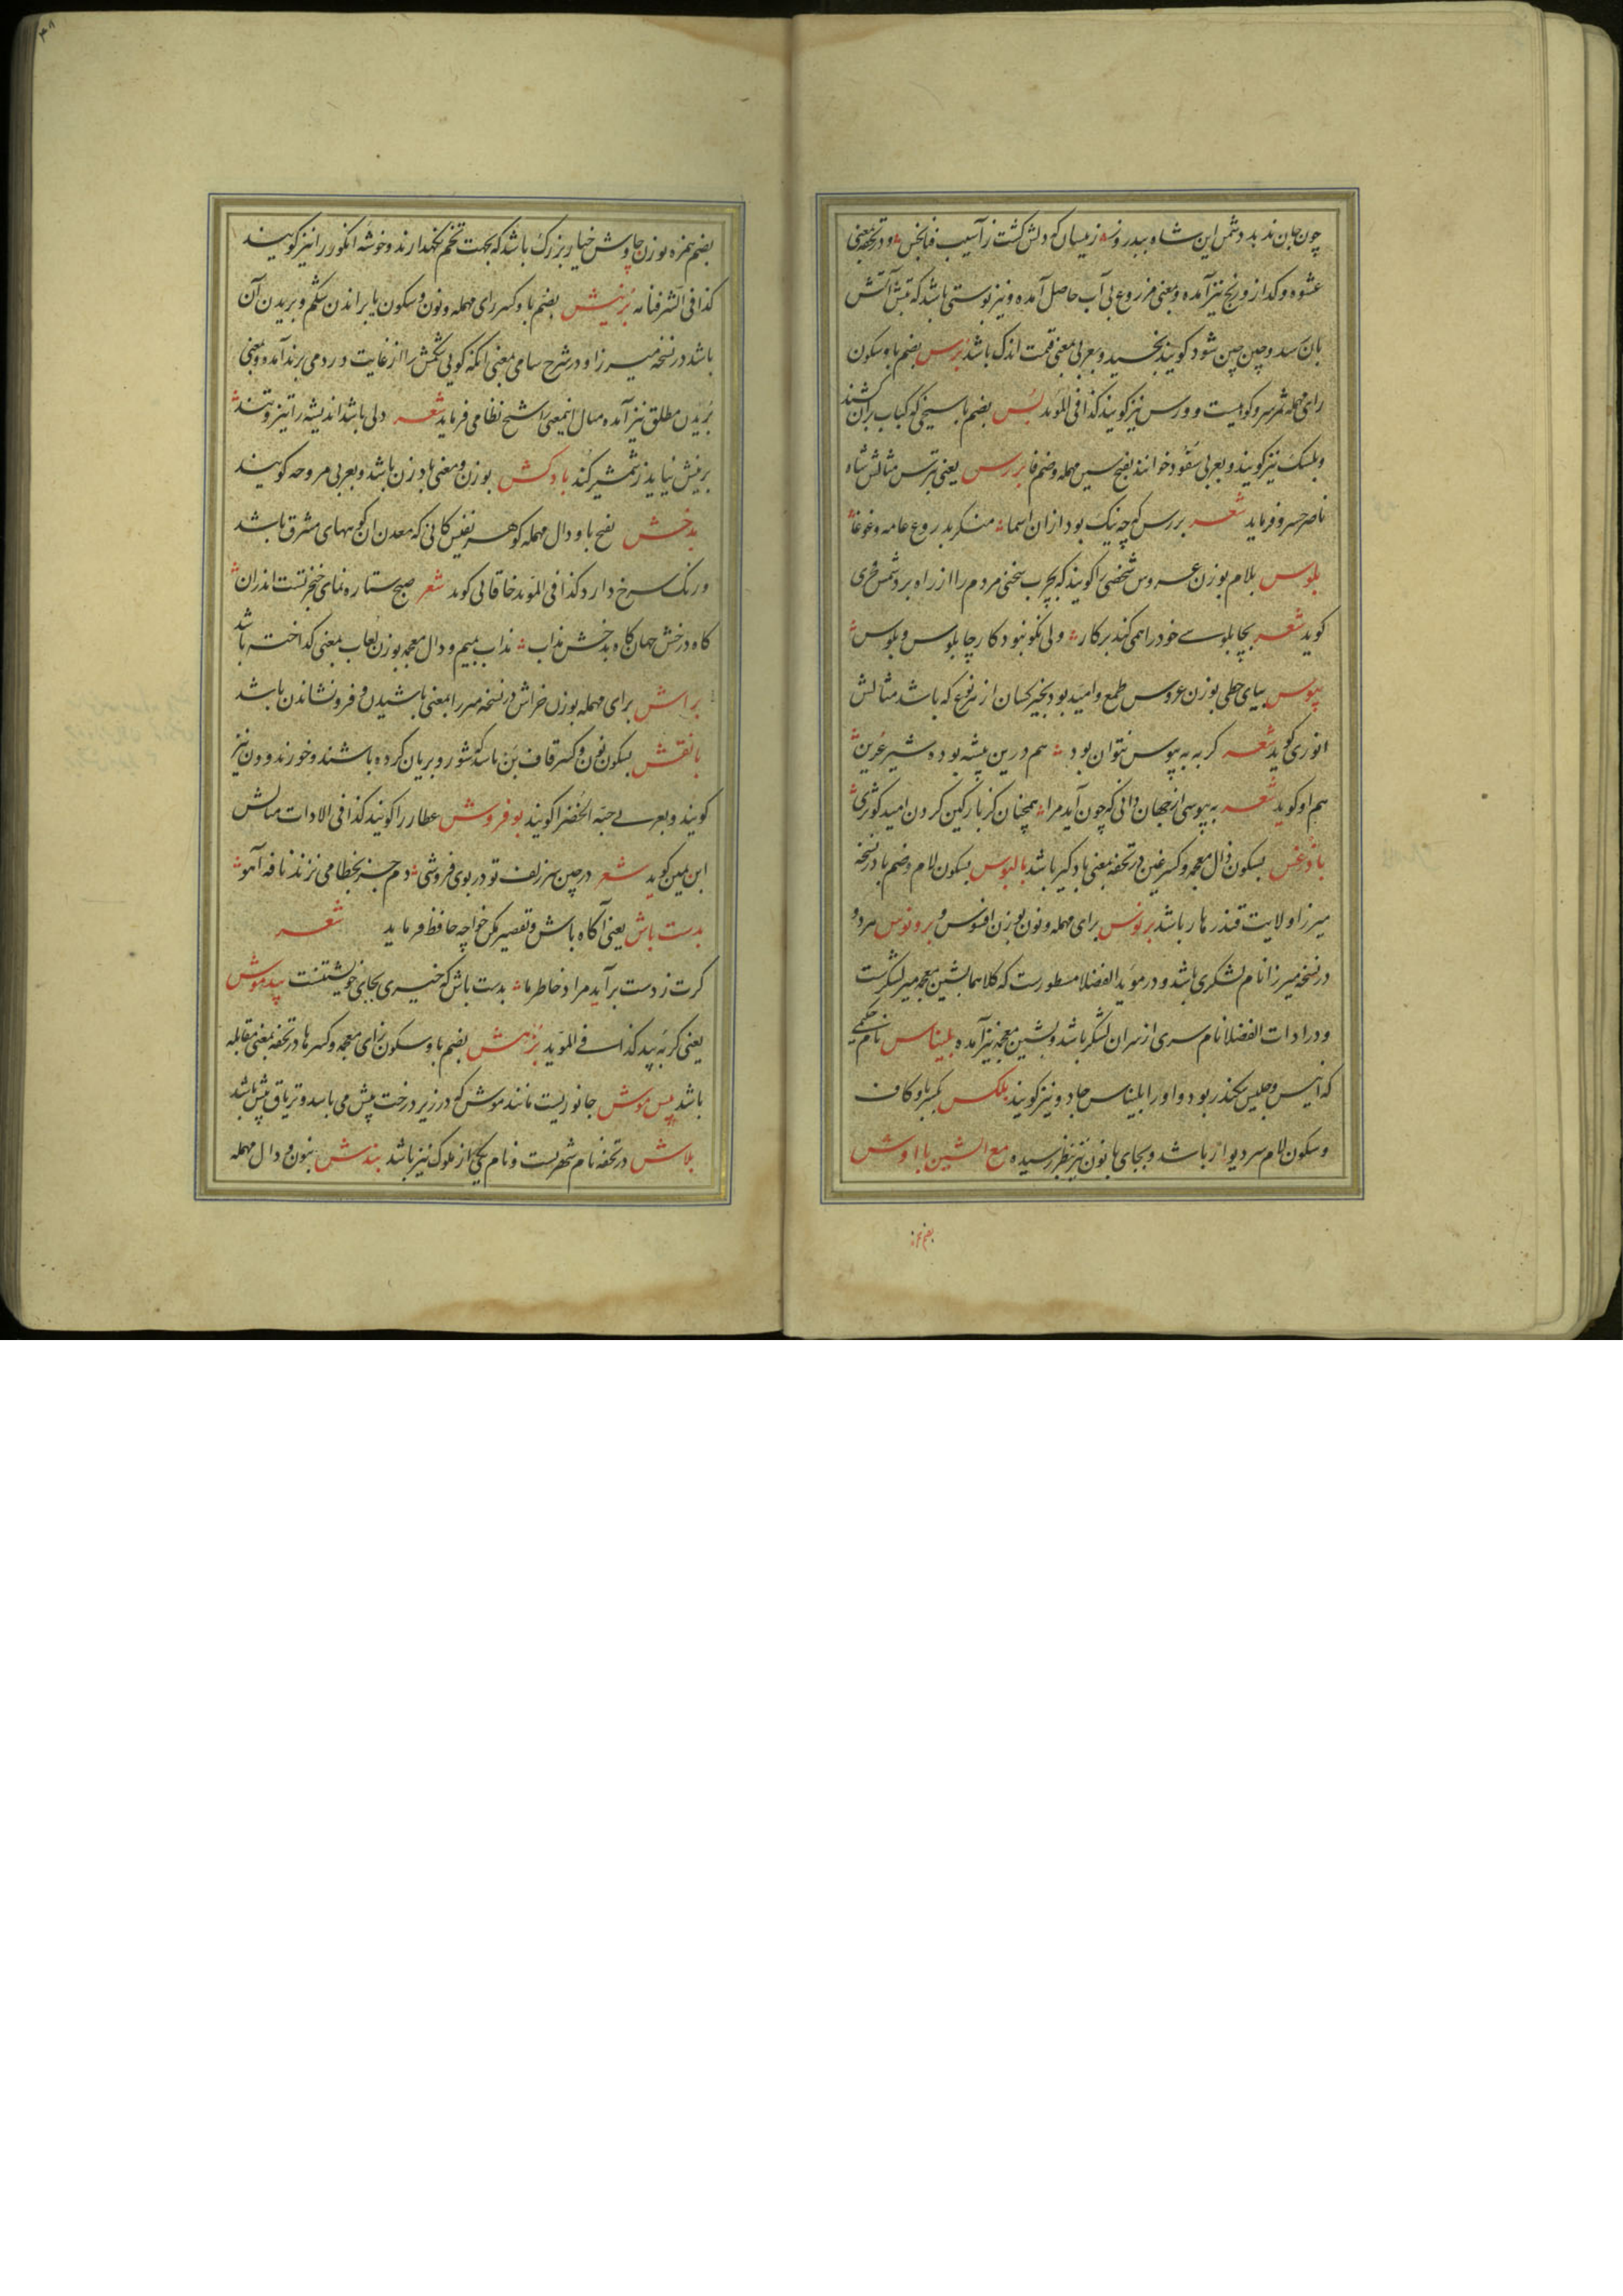 چون جان ندید دشمن این شاه بیدروند زیبسان که دلش کشت ز آسیب فنا بخس و در تحفه بمعنی
عشوه و کداز و رنج نیز آمده و بمعنی مزروع بی آب حاصل آمده و نیز پوستی باشد که تبش آتش
بان رسد و چین چین شود کویند بخسید و بعربی بمعنی قیمت اندک باشد برس بضم با و سکون
رای مهمله ثمر سرو کوهیست و ورس نیز کویند کذا فی الموید بس بضم با سیخی که کباب بران کشند
و بلسک نیز کویند و بعربی سفود خوانند بفتح سین مهمله و ضم فا بررس یعنی بترس مثالش شاه
ناصر خسرو فرماید شعر بررس که چه نیک بود ازان اسما منکر بدروع عامه و غوغا
بلوس بلام بوزن عروس شخصی را کویند که بچرب سخنی مردم را از راه برد شمس فخری
کوید شعر بچابلوسی خود را همی کند بر کار ولی نکو نبود کار چابلوس و بلوس
پیوس بیای حطی بوزن عروس طمع و امید بود بخیر کسان از هر نوع که باشد مثالش
انوری کوید شعر کر به به پیوس نتوان بود هم درین بیشه بوده شیر عرین
هم او کوید شعر به پیوسی از جهان دانی که چون آید مرا همچنان کز پارکین کردن امید کوثری
باذغس بسکون ذال معجمه و کسر غین در تحفه بمعنی بادکیر باشد بالبوس بسکون لام و ضم با در نسخه
میرزا ولایت قندهار باشد برنوس برای مهمله و نون بوزن افنوس و برونوس هر دو
در نسخه میرزا نام لشکری باشد و در موید الفضلا مسطورست که کلاهما بشین معجمه میر لشکرست
و در ادات الفضلا نام سری از سران لشکر باشد و بشین معجمه نیز آمده بلیناس نام حکیمی
که انیس و جلیس سکندر بود و او را بلیناس جادو نیز کویند بلکس بکسر با و کاف
و سکون لام سر دیوار باشد و بجای با نون نیز بنظر رسیده مع الشین با اوش
بضم همزه
۳۸
بضم همزه بوزن چاوش خیار بزرک باشد که بجهت تخم نکهدارند و خوشه انکور را نیز کویند
کذا فی الشرفنامه برنیش بضم با و کسر رای مهمله و نون و سکون یا براندن شکم و بریدن آن
باشد در نسخه میرزا و در شرح سامی بمعنی آنکه کویی شکمش را از غایت درد می برند آمده و بمعنی
بریدن مطلق نیز آمده مثال اینمعنی را شیخ نظامی فرماید شعر دلی باشد اندیشه را تیز و تند
برنیش نیاید ز شمشیر کند بادکش بوزن و بمعنی بادزن باشد و بعربی مروحه کویند
بدخش بفتح با و دال مهمله کوهر نفیس کانی که معدن آن کوههای مشرق باشد
و رنک سرخ دارد کذا فی الموید خاقانی کوید شعر صبح ستاره نمای خنجر تست اندران
کاه درخش جهان کاه بدخش مذاب مذاب بمیم و دال معجمه بوزن لعاب بمعنی کداخته باشد
براش برای مهمله بوزن خراش در نسخه میرزا بمعنی پاشیدن و فرو نشاندن باشد
بانقش بسکون نون و کسر قاف بن باشد که شور و بریان کرده باشند و خورند و ون نیز
کویند و بعربی حبة الخضرا کویند بوفروش عطار را کویند کذا فی الادات مثالش
ابن یمین کوید شعر در چین سر زلف تو در بوی فروشی دم جز بخطا می نزند نافه آهو
بدست باش یعنی آکاه باش و تقصیر مکن خواجه حافظ فرماید شعر
کرت ز دست برآید مراد خاطر ما بدست باش که خیری بجای خویشتنست پیدموش
یعنی کربه پید کذا فی الموید بزهش بضم با و سکون زای معجمه و کسر ها در تحفه بمعنی مقابله
باشد پیس موش جانوریست مانند موش که در زیر درخت پیش می باشد و تریاق پیش باشد
بلاش در تحفه نام شهریست و نام یکی از ملوک نیز باشد بندش بنون و دال مهمله